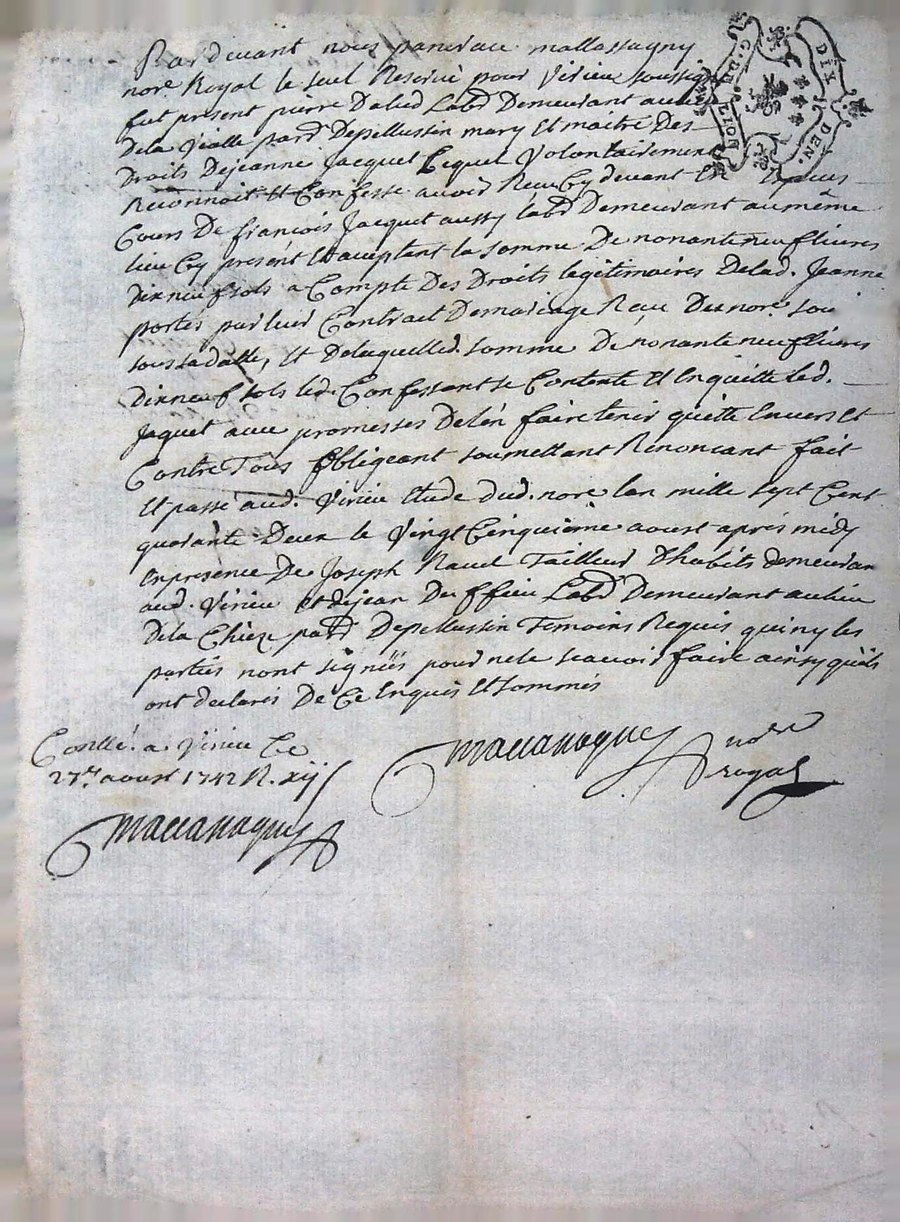 Pardevant nous pancrace mallassagny
nore. Royal le seul Reservé pour Virieu soussigné
fut present pierre Dalud Labr Demeurant au lieu
Dela Vialle parr. Depellussin mary Et maitre Des
Droits Dejeanne Jacquet Lequel Volontairement
Reconnoit Et Confesse avoir Receu Cy devant En Especes
Cours De françois Jacquet aussy labr Demeurant au même
lieu Cy présent Et aceptant la somme De nonante neuf livres
Dix neuf sols a Compte Des Droits legitimaires Delad. Jeanne
portés par leur Contract Demariage Receu Dud nore. soū
sous sa datte, Et Delaquelled. somme De nonante neuf livres
Dix neuf sols led. Confessant se Contente Et Enquitte led.
Jaquet avec promesses Delen faire tenir quitte Envers Et
Contre Tous Obligeant soumettant Renoncant fait
Et passé aud. Virieu Etude dud. nore lan mille sept Cent
quarante Deux le Vingt Cinquieme aoust aprés midy
En presence De Joseph Ravel Tailleur D'habits demeuran
aud. Virieu et dejean Duffieu Labr Demeurant au lieu
Dela Chieze parr Depellussin Temoins Requis qui ny les
parties nont signées pour nele scavoir faire ainsy quils
ont declarés De Ce Enquis Et sommés
Conllé. a. Virieu Ce
27e. aoust 1742 R. xij s
nore
royal
G. DE LION
DIX DEN.